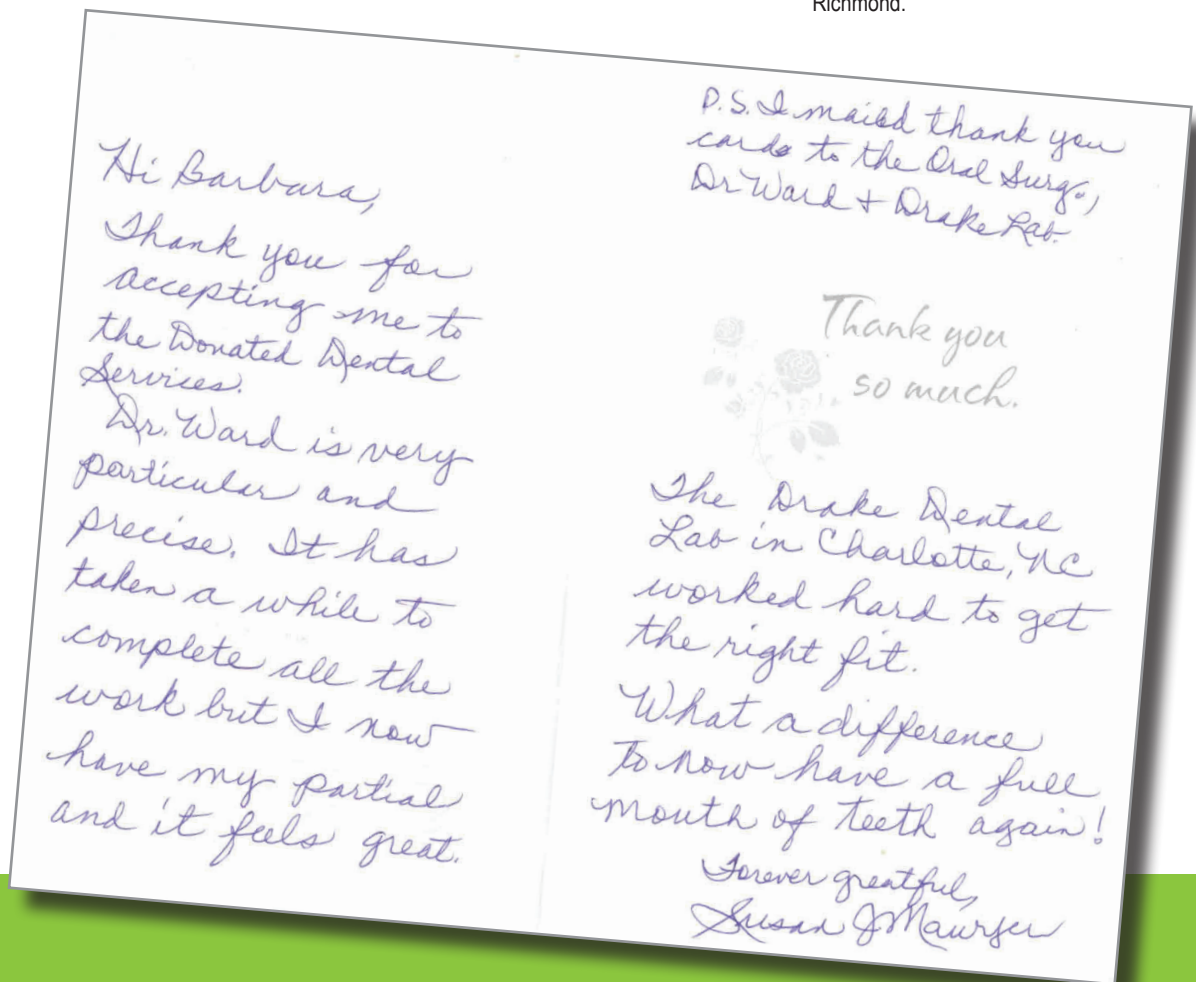 Richmond.
Hi Barbara,
Thank you for
accepting me to
the Donated Dental
Services.
Dr. Ward is very
particular and
precise. It has
taken a while to
complete all the
work but I now
have my partial
and it feels great.
P.S. I maild thank you
cards to the Oral Surg.,
Dr Ward + Drake Lab.
Thank you
so much.
The Drake Dental
Lab in Charlotte, NC
worked hard to get
the right fit.
What a difference
to now have a full
mouth of teeth again!
Forever greatful,
Susan J